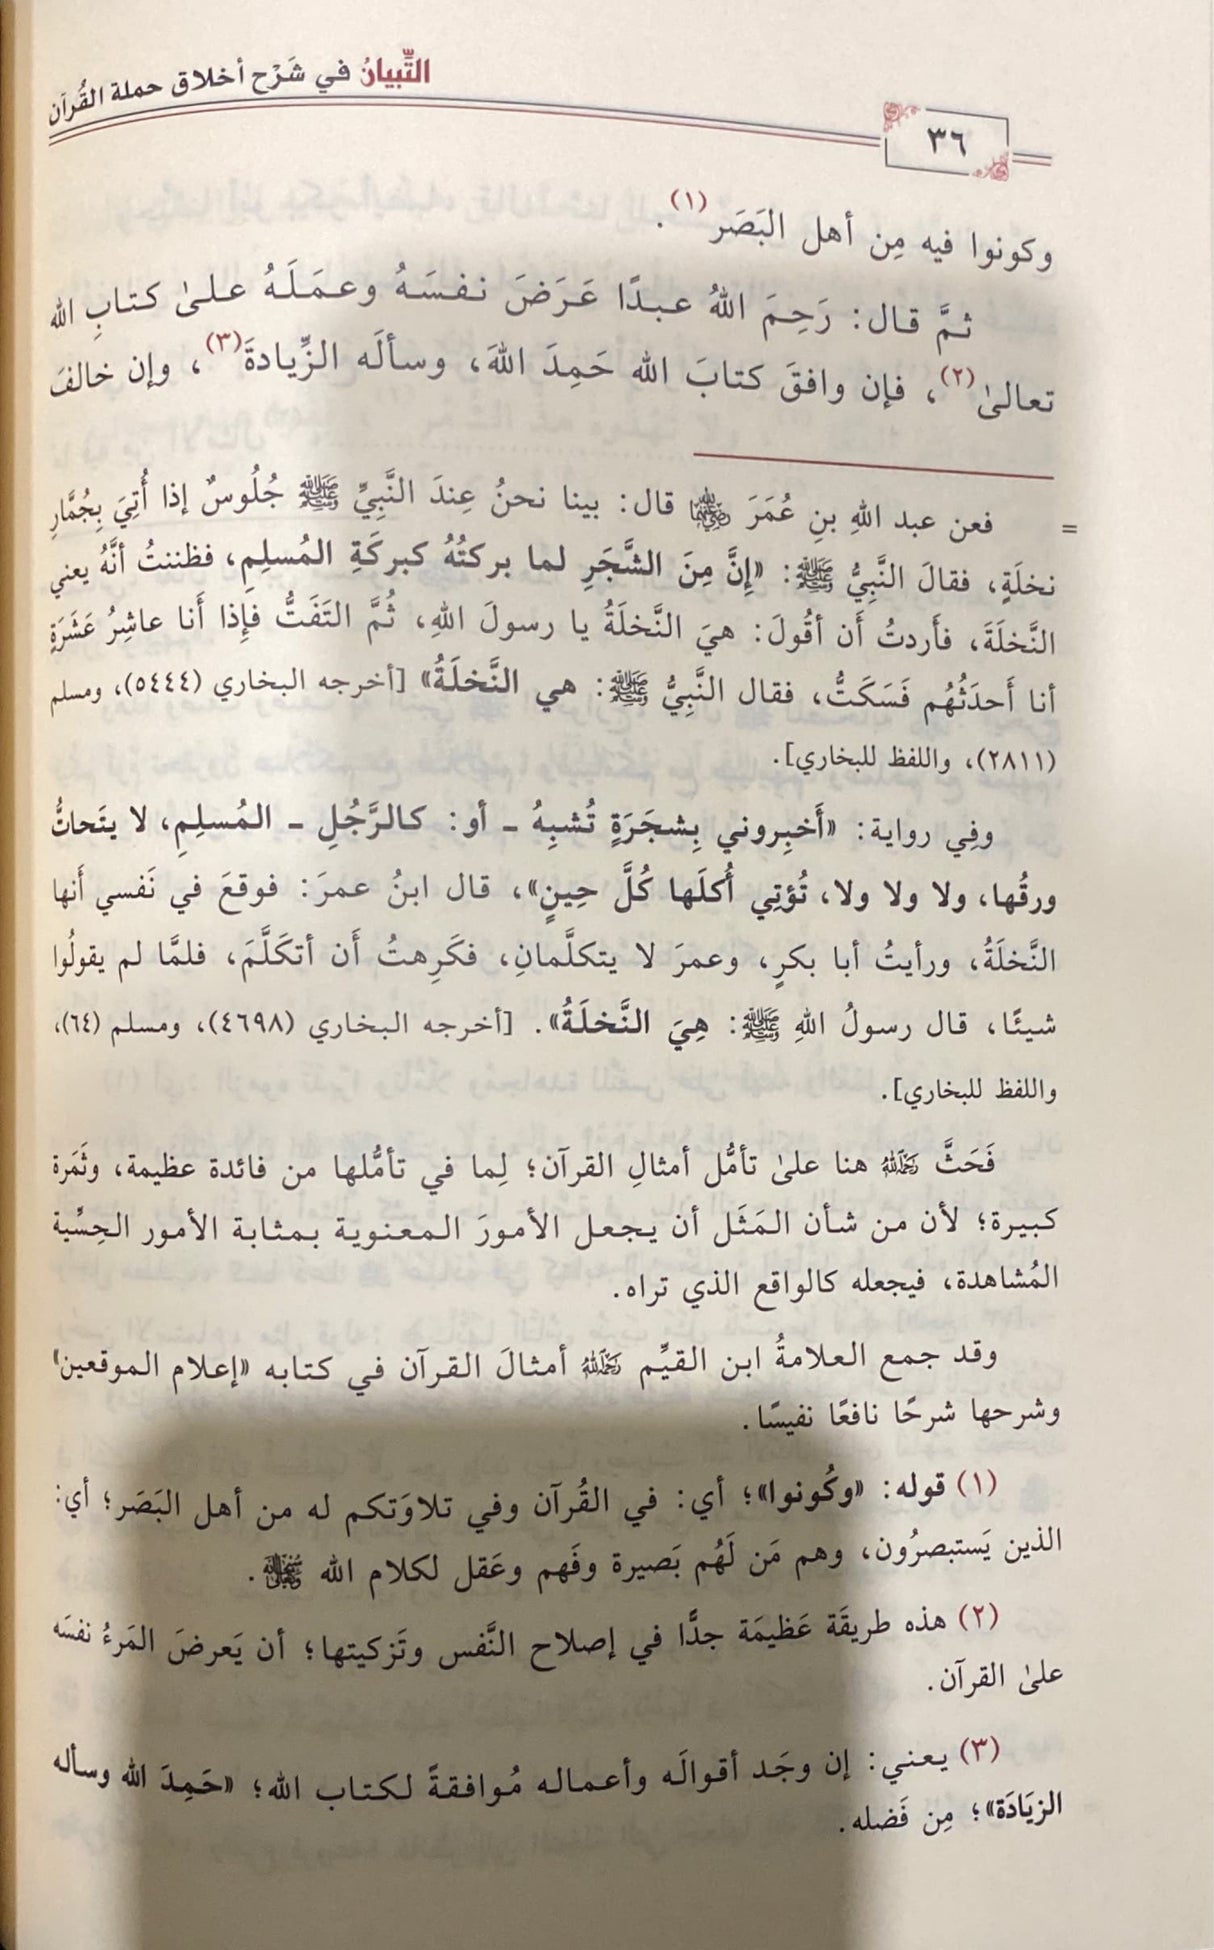 التِّبيانُ في شَرْح أخلاق حملة القُرآن
٣٦
وكونوا فيه مِن أهل البَصَر(١).
ثمَّ قال: رَحِمَ اللهُ عبدًا عَرَضَ نفسَهُ وعمَلَهُ علىٰ كتابِ الله
تعالىٰ(٢)، فإن وافقَ كتابَ الله حَمِدَ اللهَ، وسألَه الزِّيادةَ(٣)، وإن خالفَ
= فعن عبد اللهِ بنِ عُمَرَ رضي الله عنهما قال: بينا نحنُ عِندَ النَّبِيِّ ﷺ جُلُوسٌ إذا أُتِيَ بِجُمَّارِ
نخلَةٍ، فقالَ النَّبِيُّ ﷺ: «إِنَّ مِنَ الشَّجَرِ لما بركتُهُ كبركَةِ المُسلِمِ، فظننتُ أنَّهُ يعني
النَّخلَةَ، فأَردتُ أَن أقُولَ: هيَ النَّخلَةُ يا رسولَ اللهِ، ثُمَّ التَفَتُّ فإِذا أَنا عاشِرُ عَشَرَةٍ
أنا أَحدَثُهُم فَسَكَتُّ، فقال النَّبِيُّ ﷺ: هي النَّخلَةُ» [أخرجه البخاري (٥٤٤٤)، ومسلم
(٢٨١١)، واللفظ للبخاري].
وفِي رواية: «أَخبِروني بِشجَرَةٍ تُشبِهُ - أو: كالرَّجُلِ - المُسلِمِ، لا يتَحاتُّ
ورقُها، ولا ولا ولا، تُؤتِي أُكلَها كُلَّ حِينٍ»، قال ابنُ عمرَ: فوقعَ في نَفسي أَنها
النَّخلَةُ، ورأيتُ أبا بكرٍ، وعمرَ لا يتكلَّمانِ، فكَرِهتُ أَن أتكَلَّمَ، فلمَّا لم يقولُوا
شيئًا، قال رسولُ اللهِ ﷺ: هِيَ النَّخلَةُ». [أخرجه البخاري (٤٦٩٨)، ومسلم (٦٤)،
واللفظ للبخاري].
فَحَثَّ رحمه الله هنا علىٰ تأمُّل أمثالِ القرآن؛ لِما في تأمُّلها من فائدة عظيمة، وثَمَرة
كبيرة؛ لأن من شأن المَثَل أن يجعل الأمورَ المعنوية بمثابة الأمور الحِسِّية
المُشاهدة، فيجعله كالواقع الذي تراه.
وقد جمع العلامةُ ابن القيِّم رحمه الله أمثالَ القرآن في كتابه «إعلام الموقعين»
وشرحها شرحًا نافعًا نفيسًا.
(١) قوله: «وكُونوا»؛ أي: في القُرآن وفي تلاوَتكم له من أهل البَصَر؛ أي:
الذين يَستبصرُون، وهم مَن لَهُم بَصيرة وفَهم وعَقل لكلام الله
(٢) هذه طريقَة عَظيمَة جدًّا في إصلاح النَّفس وتَزكيتها؛ أن يَعرضَ المَرءُ نفسَه
علىٰ القرآن.
(٣) يعني: إن وجَد أقوالَه وأعماله مُوافقةً لكتاب الله؛ «حَمِدَ الله وسأله
الزيَادَة»؛ مِن فَضله.